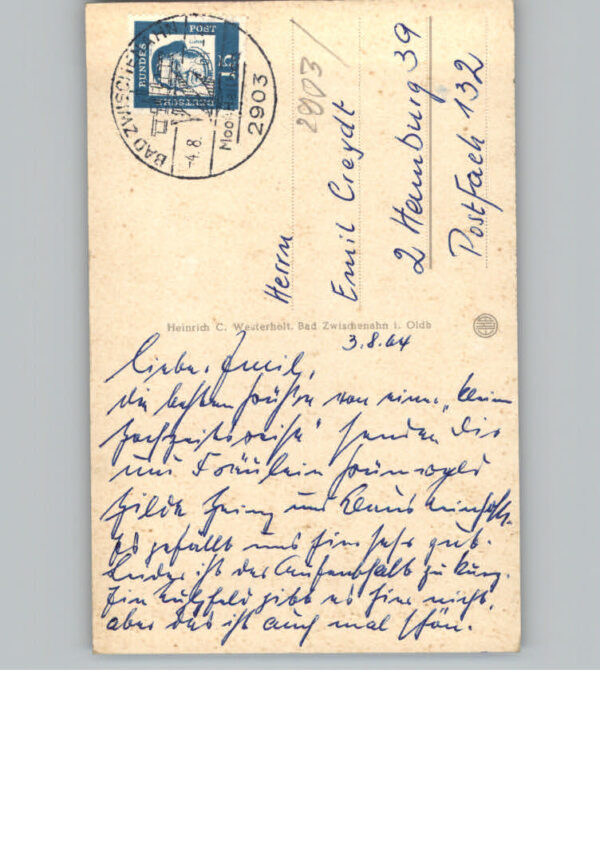 DEUTSCHE
BUNDES
POST
15
BAD ZWISCHENAHN
-4.8.
Moor
2903
2903/
Herrn
Emil Creydt
2 Hamburg 39
Postfach 132
Heinrich C. Westerholt, Bad Zwischenahn i. Oldb
3.8.64
Lieber Emil,
die besten Grüße von einer „kleinen
Hochzeitsreise" senden Dir
und Fräulein
Hilde Heinz und Klaus
Es gefällt uns hier sehr gut.
Leider ist der Aufenthalt zu kurz.
Ein gibt es hier nicht,
aber das ist auch mal schön.